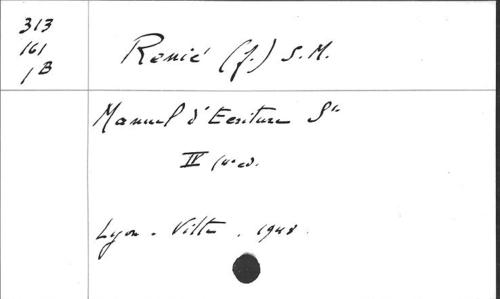 313
161
1B
Renié (J.) S.M.
Manuel d'Ecriture Ste
IV (4e ed.
Lyon. Vitte. 1948.